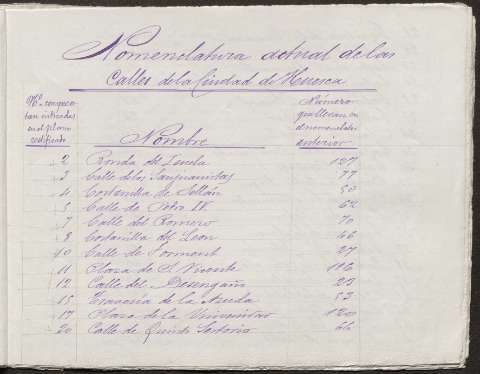 Nomenclatura actual de las
Calles de la Ciudad de Huesca
Nº con que es-
tan indicadas
en el plano
Nombre
Número
que llevan en
el nomenclator
anterior
2 Ronda de 127
3 Calle de los Sanjuanistas 77
4 Costanilla de Sellán 50
5 Calle de Pedro IV 62
7 Calle del Romero 70
8 Costanilla del Leon 46
10 Calle de Formont 27
11 Plaza de S. Vicente 116
12 Calle del Desengaño 23
15 Travesía de la 53
17 Plaza de la Universidad 120
20 Calle de Quinto Sertorio 66